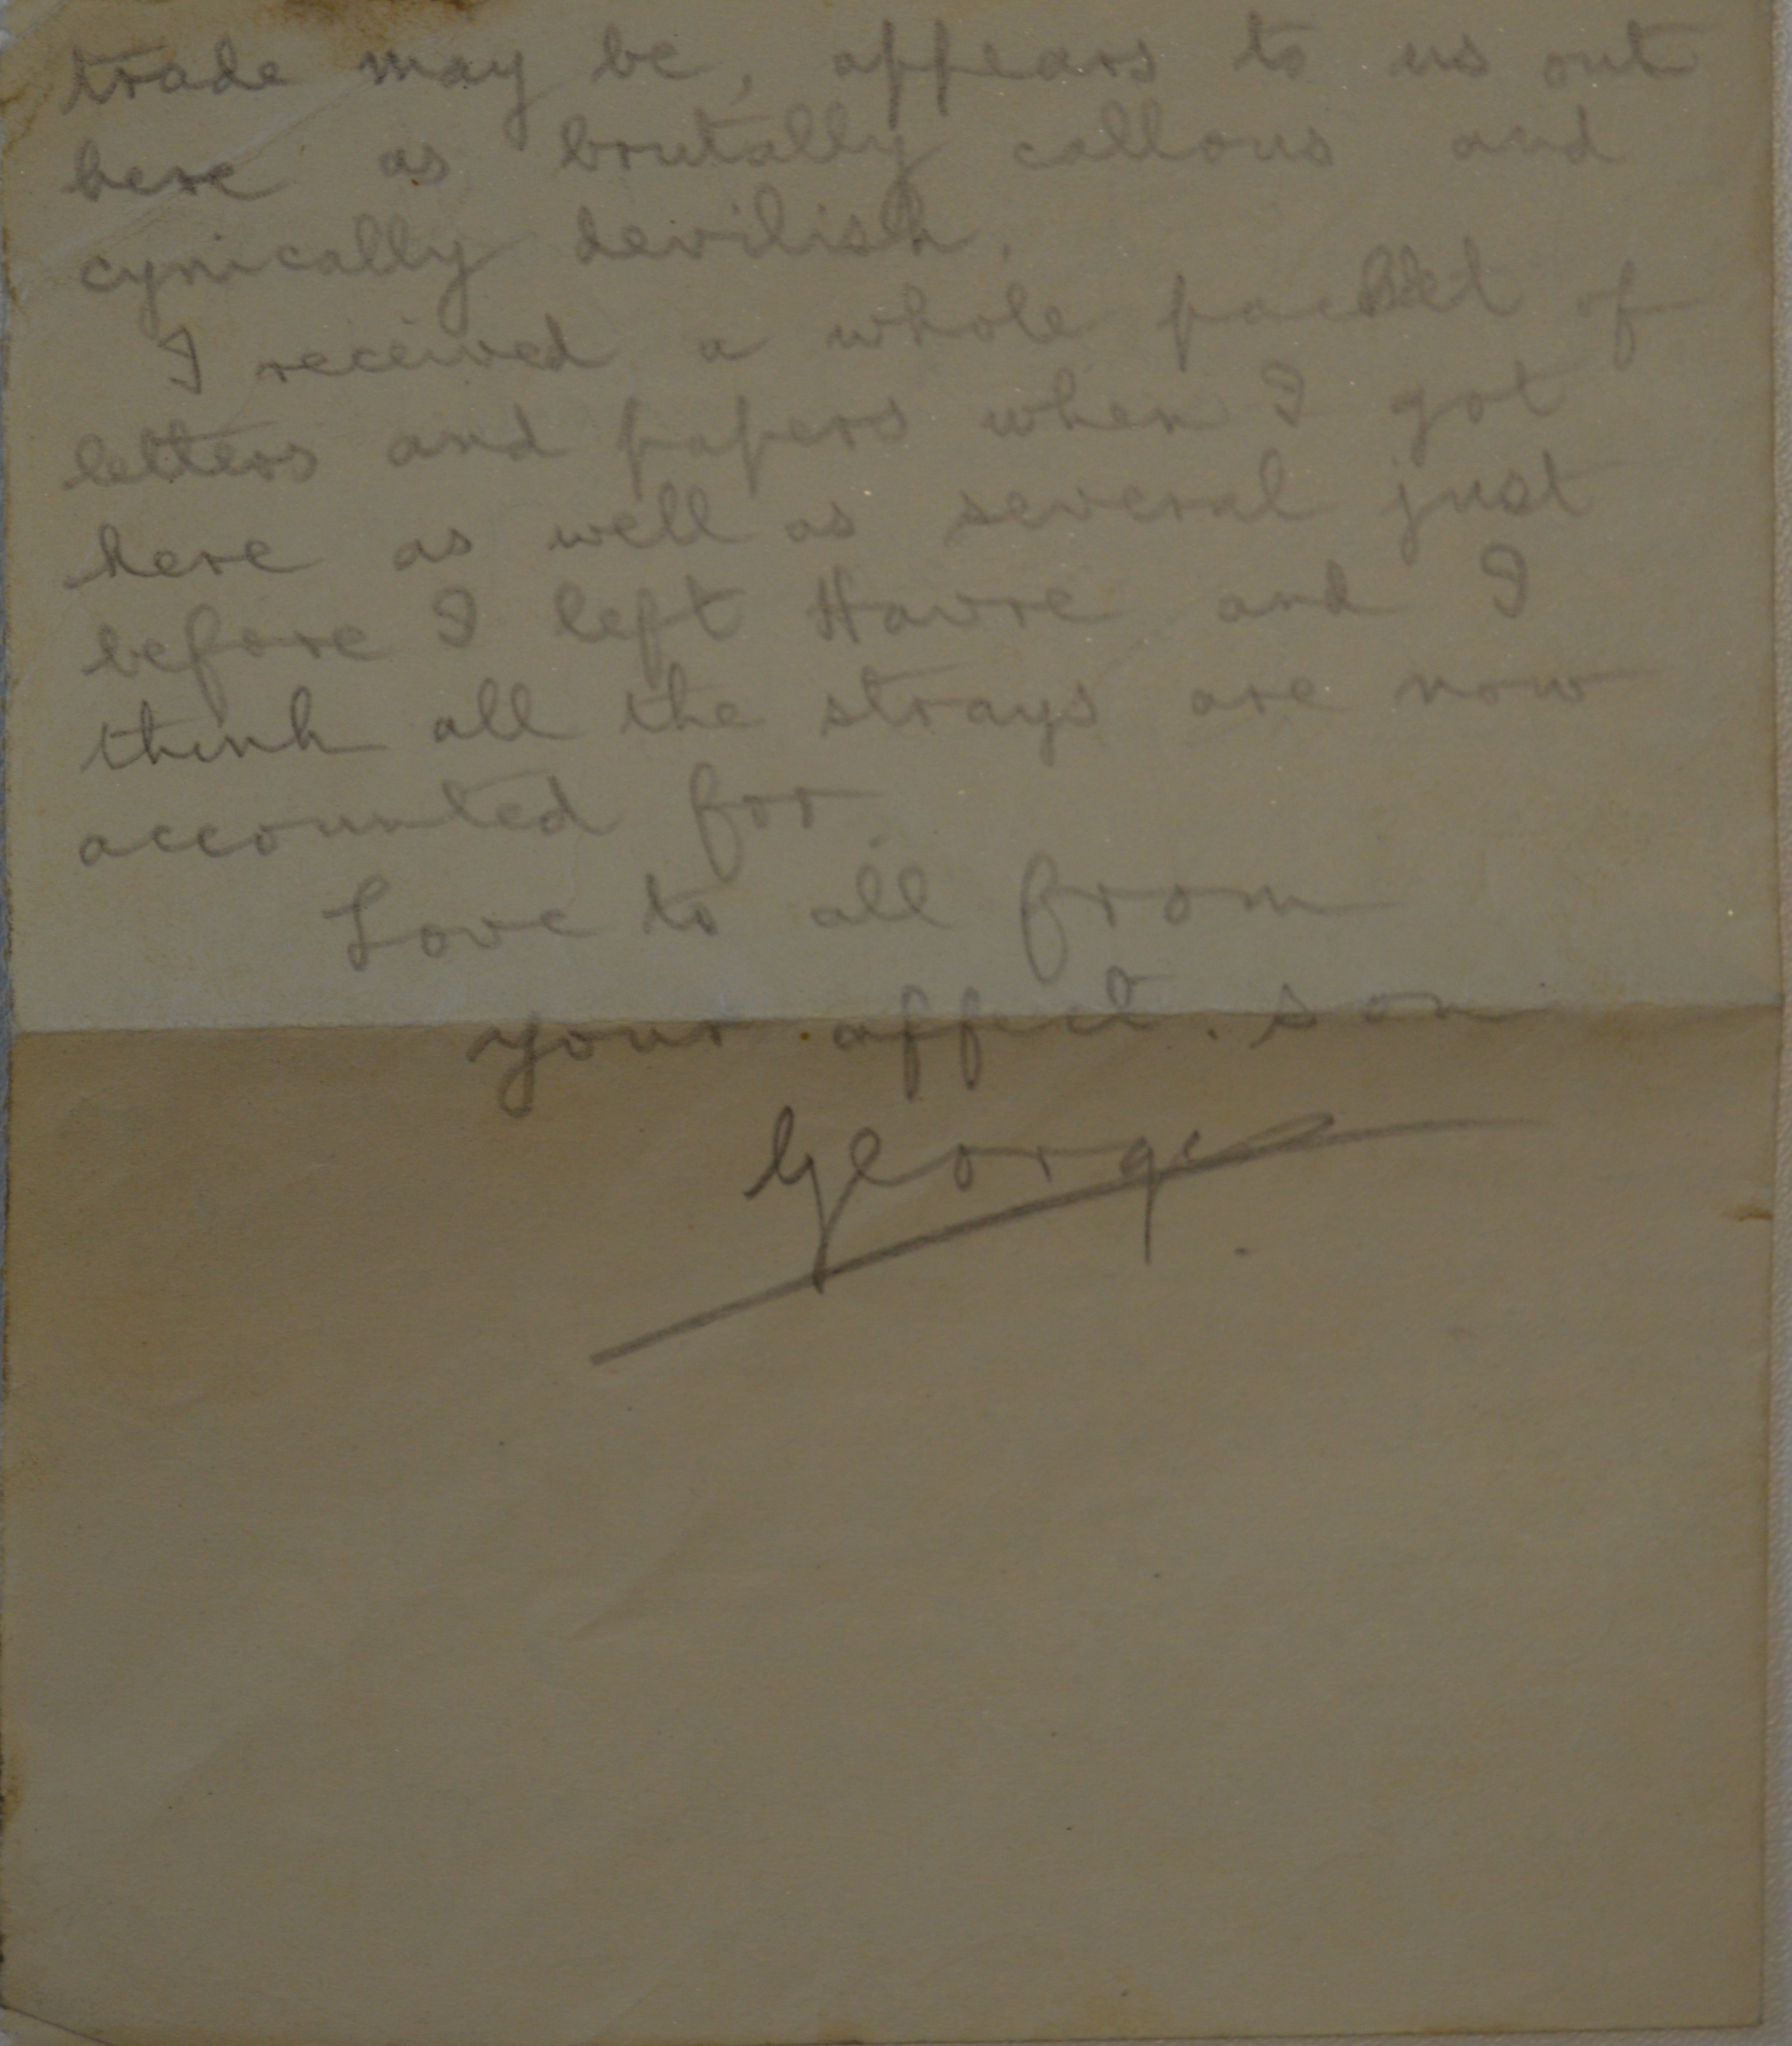 trade may be, appears to us out
here as brutally callous and
cynically devilish.
I received a whole packet of
letters and papers when I got
here as well as several just
before I left Havre and I
think all the strays are now
accounted for.
Love to all from
your affect. son
George